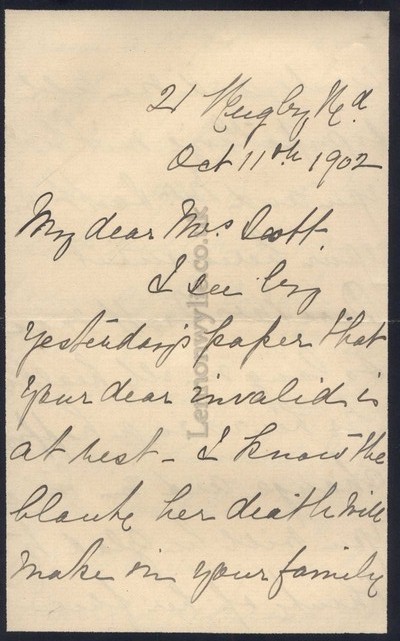 21 Rugby Rd
Oct 11th 1902
My dear Mrs Scott.
I see by
yesterday's paper that
your dear invalid is
at rest - I know the
blank her death will
make in your family
Lennonwylie.co.uk